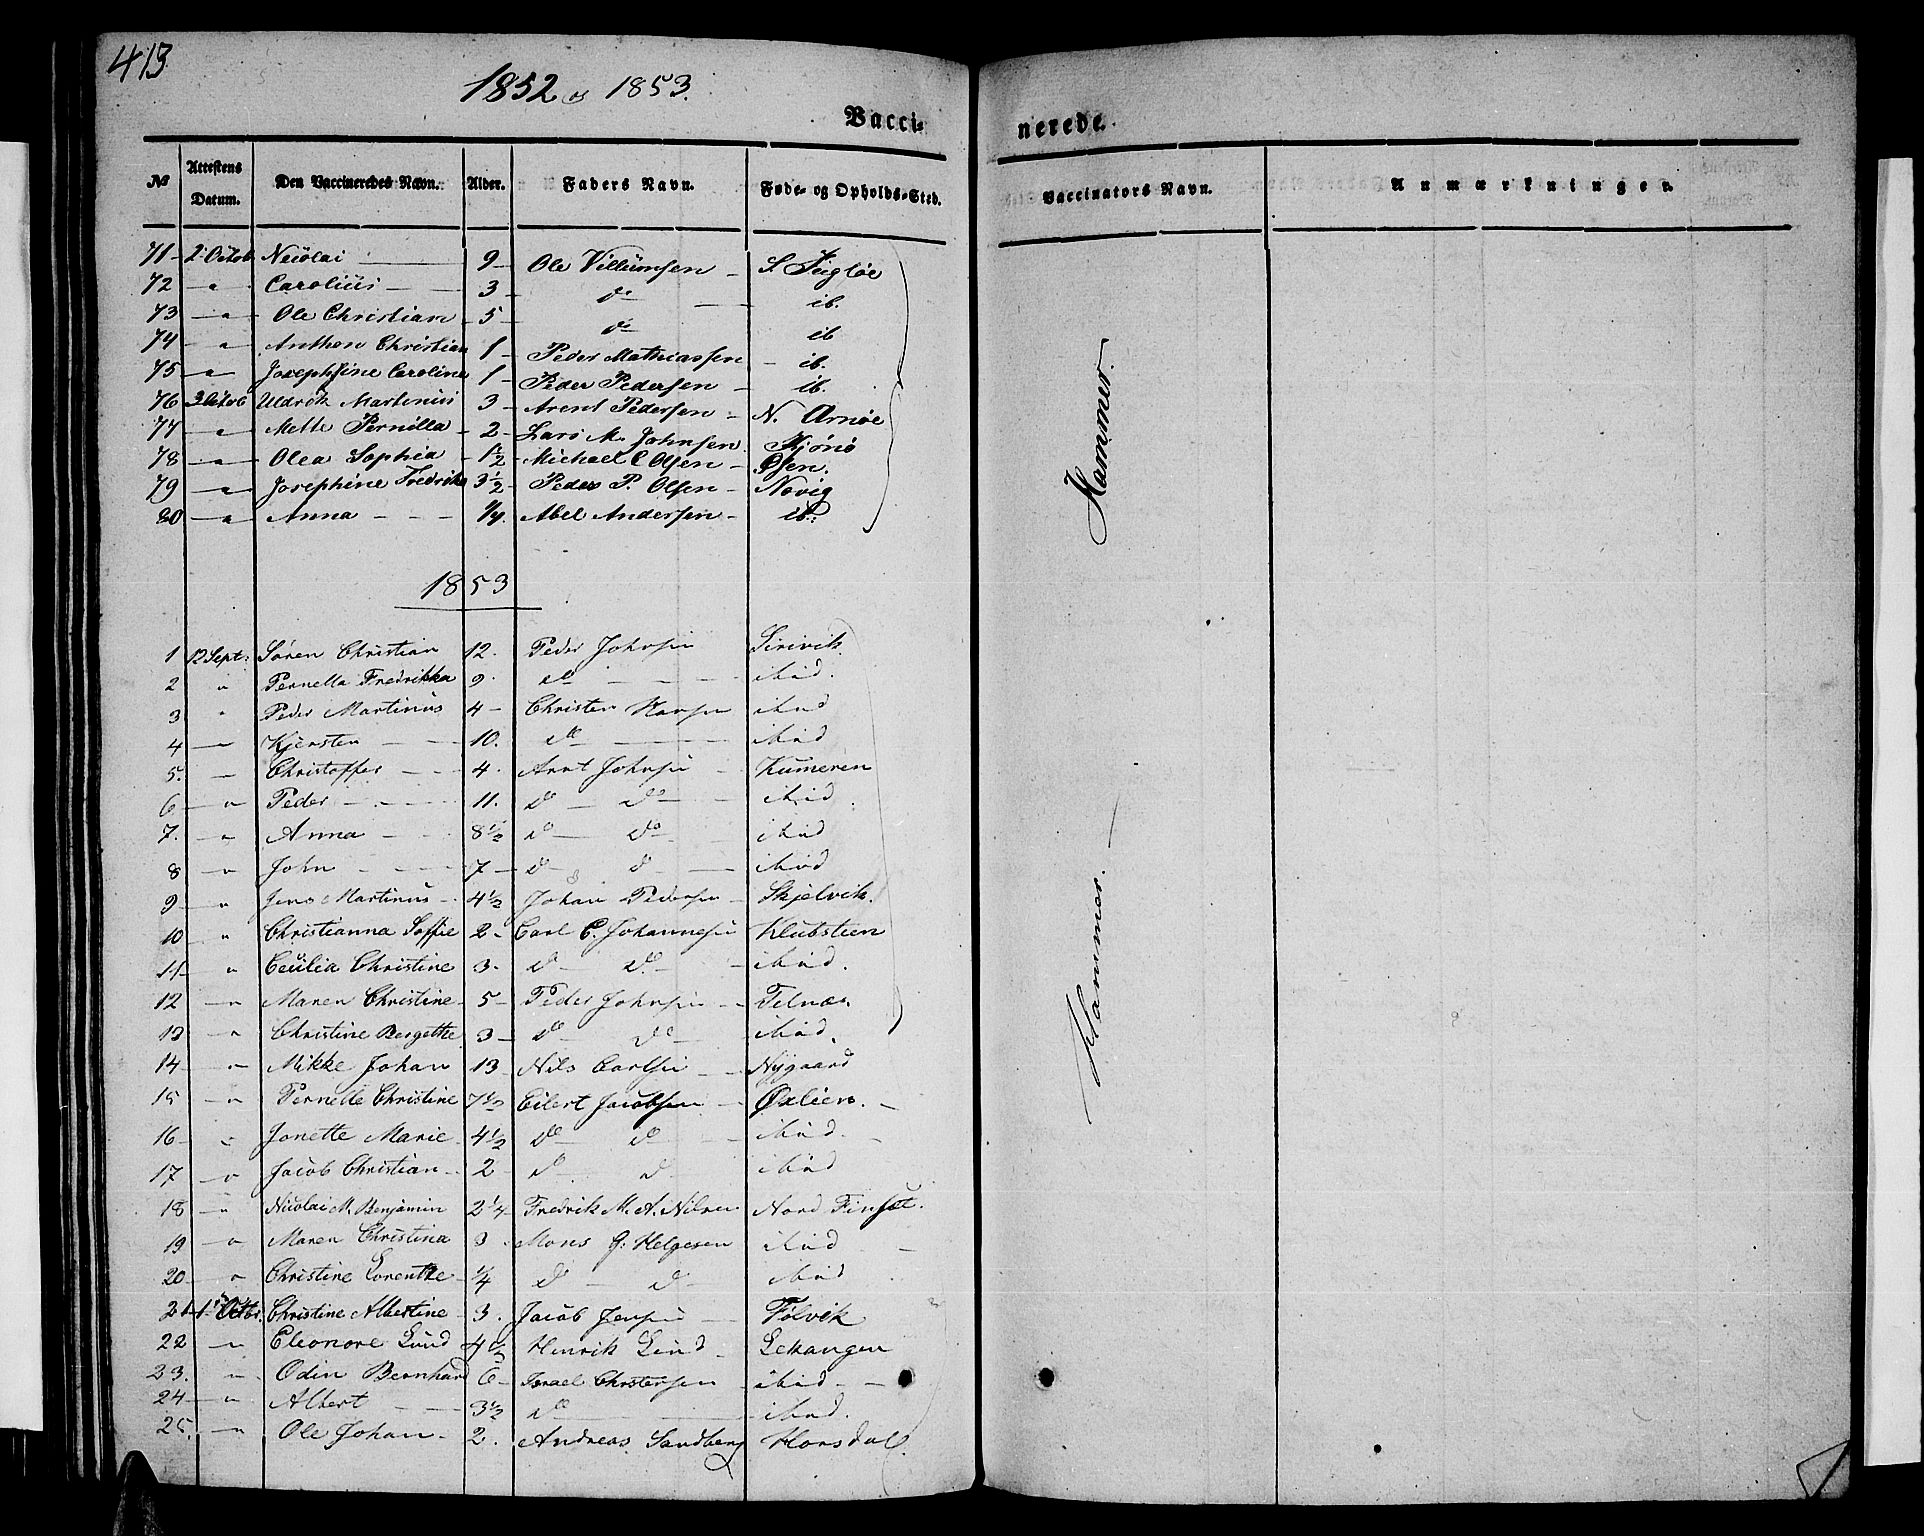 413
1852 og 1853.
Vacci- nerede.
No Attestens Datum. Den Vaccineredes Navn. Alder. Faders Navn. Føde- og Opholds-Sted. Vaccinators Navn. Anmærkninger.
71 2 Octob Nicolai 9 Ole Villumsen S. Fugløe
72 " Carolius 3 do ib.
73 " Ole Christian 5 do ib
74 " Anthon Christian 1 Peder Mathiassen ib.
75 " Josephine Caroline 1 Peder Pedersen ib.
76 3 Octob Uldrik Martinus 3 Arent Pedersen N. Arnøe
77 " Mette Pernilla 2 Lars M. Johnsen
78 " Olea Sophia 1½ Michael C Olsen Øsen.
79 " Josephine Fredrika 3½ Peder P. Olsen Novig
80 " Anna 1/4 Abel Andersen ib:
Hammer.
1853
1 12 Sept: Søren Christian 12. Peder Johnsen
2 " Pernella Fredrikka 9. do ibid.
3 " Peder Martinus 4 Christen Hansen ibid
4 " Kjersten 10. do ibid
5. " Christoffer 4. Arnt Johnsen Kumeren
6 " Peder 11. do do ibid
7. " Anna 8½ do do ibid
8 " John 7 do do ibid
9 " Jens Martinus 4½ Johan Pedersen Skjelvik.
10 " Christianna Soffie 2 Carl C. Johannesen Klubsteen
11 " Cecilia Christine 3. do do ibid.
12 " Maren Christine 5 Peder Johnsen Telnæs.
13 " Christine Bergette 3 do do ibid.
14 " Mikke Johan 13 Nils Carlsen Nygaard
15 " Pernelle Christine 7½ Eilert Jacobsen Øxlien.
16 " Jonette Marie 4½ do do ibid.
17 " Jacob Christian 2 do do ibid
18 " Nicolai M. Benjamin 2¼ Fredrik M. A. Nilsen Nord Finset.
19 " Maren Christina 3 Mons G. Helgesen ibid
20 " Christine Lorentze ¼ do do ibid
21 1 Octbr. Christine Albertine 3. Jacob Jensen Følvik
22 " Eleonore Lund 4½ Henrik Lund Lekangen
23. " Odin Bernhard 6 Israel Christensen ibid
24 " Albert 3½ do ibid.
25. " Ole Johan 2. Andreas Sandberg Horsdal.
Hammer.